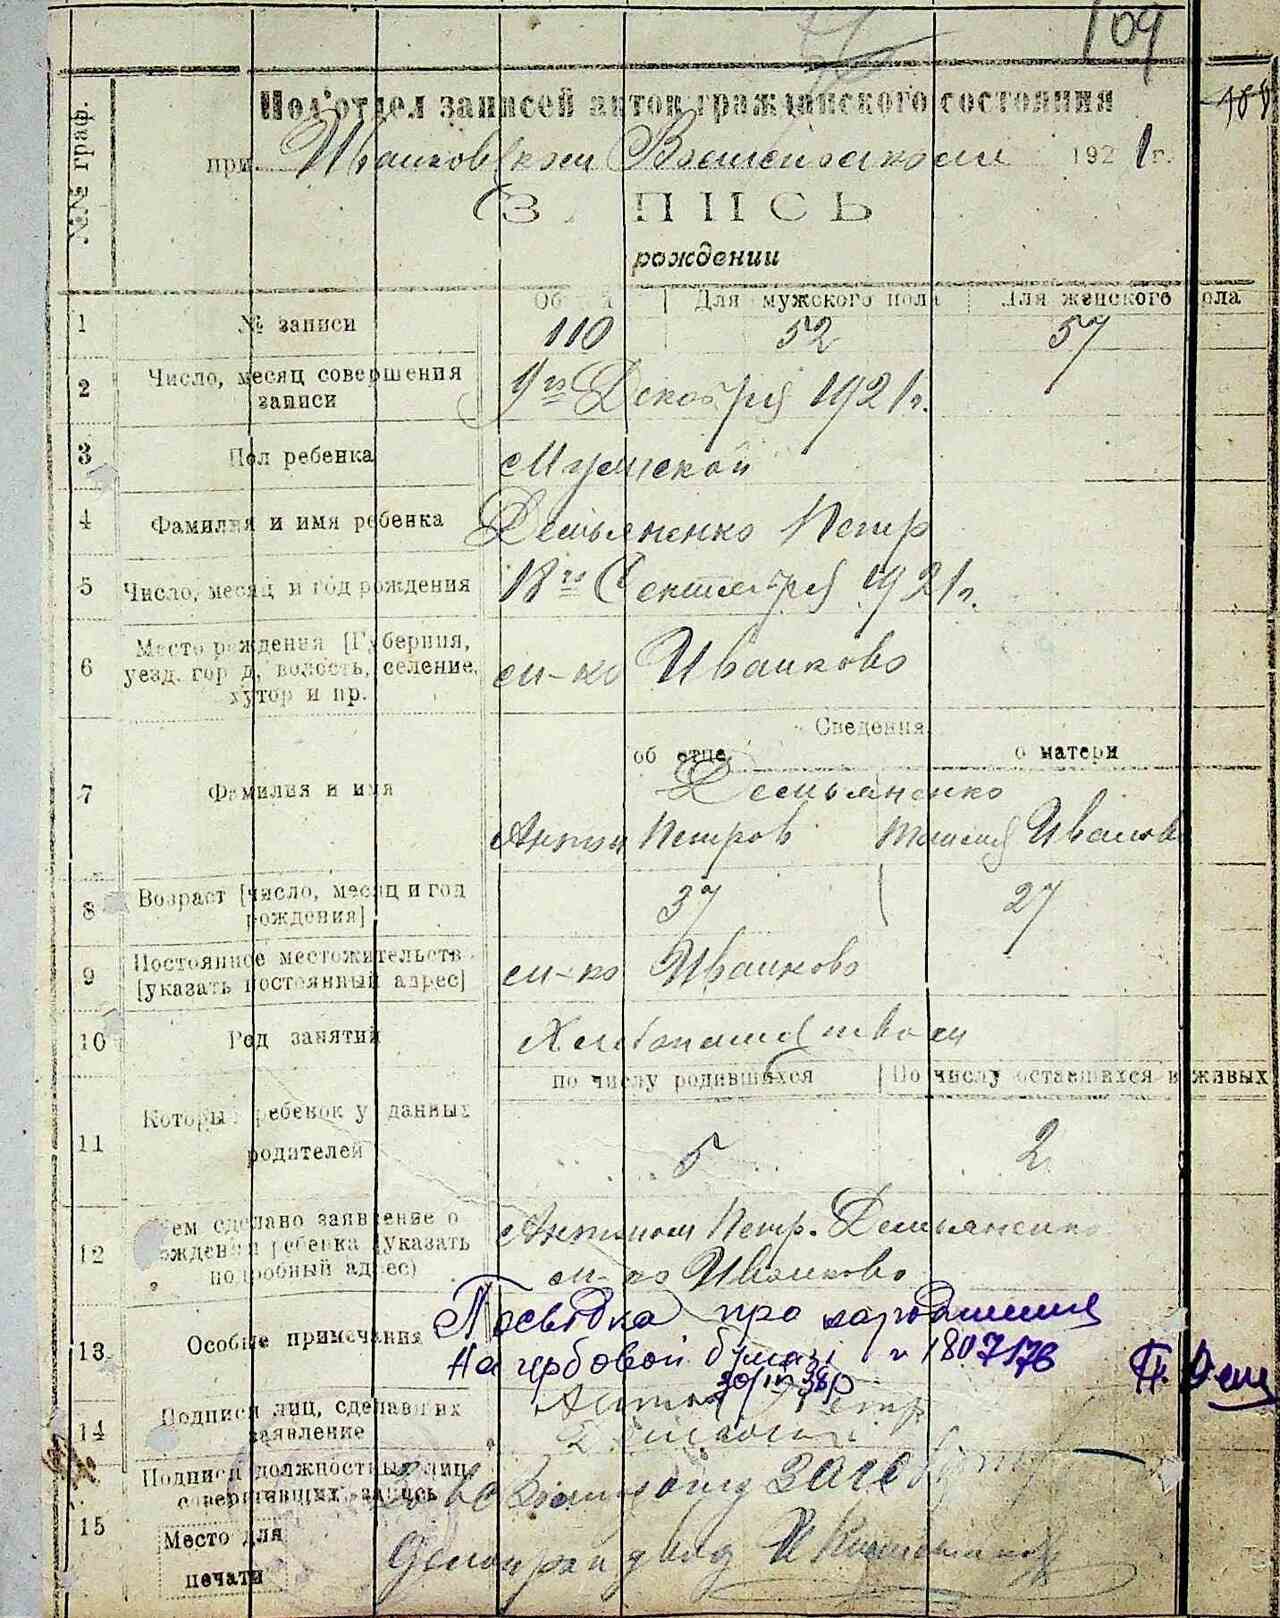 109
Под'отдел записей актов гражданского состояния
№№ граф.
при Иванковском Волисполкоме 1921 г.
ЗАПИСЬ
рождении
Общий Для мужского пола Для женского пола
1 № записи 110 52 57
2 Число, месяц совершения
записи
9го Декабря 1921 г.
3 Пол ребенка Мужской
4 Фамилия и имя ребенка Демьяненко Петр
5 Число, месяц и год рождения 18го Сентября 1921 г.
6 Место рождения [Губерния,
уезд, город, волость, селение,
хутор и пр.
м-ко Иванково
Сведения
об отце о матери
7 Фамилия и имя Демьяненко
Антон Петров
8 Возраст [число, месяц и год
рождения]
37 27
9 Постоянное местожительств
[указать постоянный адрес]
м-ко Иванково
10 Род занятий Хлебопашеством
по числу родившихся По числу оставшихся в живых
11 Который ребенок у данных
родителей
5 2
12 Кем сделано заявление о
рождении ребенка (указать
подробный адрес)
Антоном Петр. Демьяненко
м-ко Иваньково
13 Особые примечания
Посвідка про народження
На гербовой бумазі 1807176
П. Дем
14 Подписи лиц, сделавших
заявление
Антон Петр
15 Подписи должностных лиц
совершивших запись
ЗАГС
Место для
печати